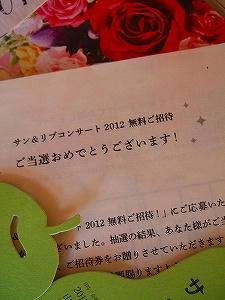 サン&リブコンサート2012 無料ご招待
ご当選おめでとうございます!
ト2012 無料ご招待!」にご応募いた
ざいました。抽選の結果、あなた様がご当
ご招待券をお贈りさせていただきます
サ